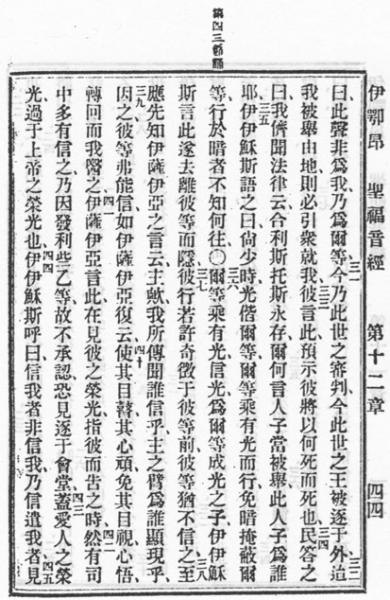 伊鄂昂 聖福音經 第十二章 四四
曰此聲非爲我、乃爲爾等、三一今乃此世之審判、今此世之王被逐于外、三二迨
我被舉由地、則必引衆就我、三三彼言此、預示彼將以何死而死也、三四民答之
曰、我儕聞法律云、合利斯托斯永存、爾何言人子當被舉、此人子爲誰
耶、三五伊伊穌斯語之曰、尙少時光偕爾等、爾等乘有光而行、免暗掩蔽爾
等、行於暗者不知何往、○三六爾等乘有光、信光、爲爾等成光之子、伊伊穌
斯言此、遂去離彼等而隱、三七彼行若許奇徵于彼等前、彼等猶不信之、三八至
應先知伊薩伊亞之言云、主歟、我所傳聞誰信乎、主之臂爲誰顯現乎、
三九因之彼等弗能信、如伊薩伊亞復云、四十使其目瞽、其心頑、免其目視、心悟、
轉回、而我醫之、四一伊薩伊亞言此、在見彼之榮光、指彼而吿之時、四二然有司
中多有信之、乃因發利些乙等故、不承認、恐見逐于會堂、四三蓋愛人之榮
光過于上帝之榮光也、四四伊伊穌斯呼曰、信我者、非信我、乃信遣我者、四五見